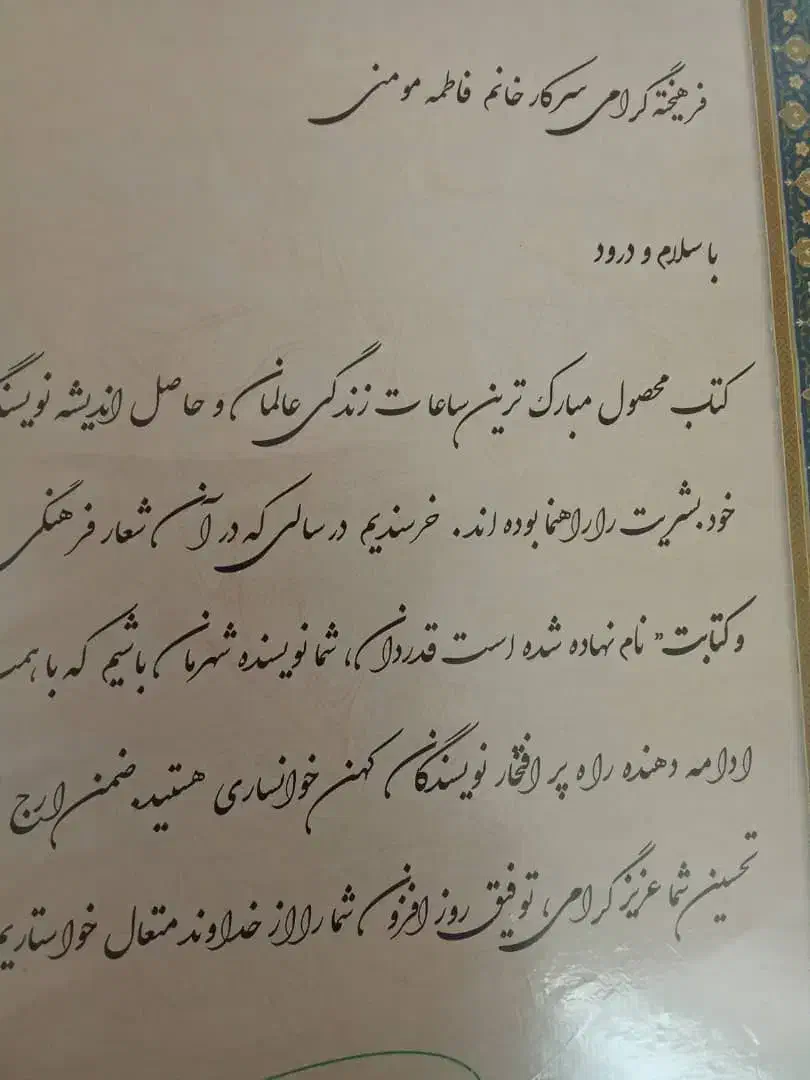 فرهیختهٔ گرامی سرکار خانم فاطمه مومنی
با سلام و درود
کتاب محصول مبارک ترین ساعات زندگی عالمان و حاصل اندیشه
خود بشریت را راهنما بوده اند. خرسندیم در سالی که در آن شعار فرهنگی
و کتابت" نام نهاده شده است قدردان، شما نویسنده شهرمان باشیم که با
ادامه دهنده راه پر افتخار نویسندگان کهن خوانساری هستید. ضمن ارج
تحسین شما عزیز گرامی، توفیق روز افزون شما را از خداوند متعال خواستاریم